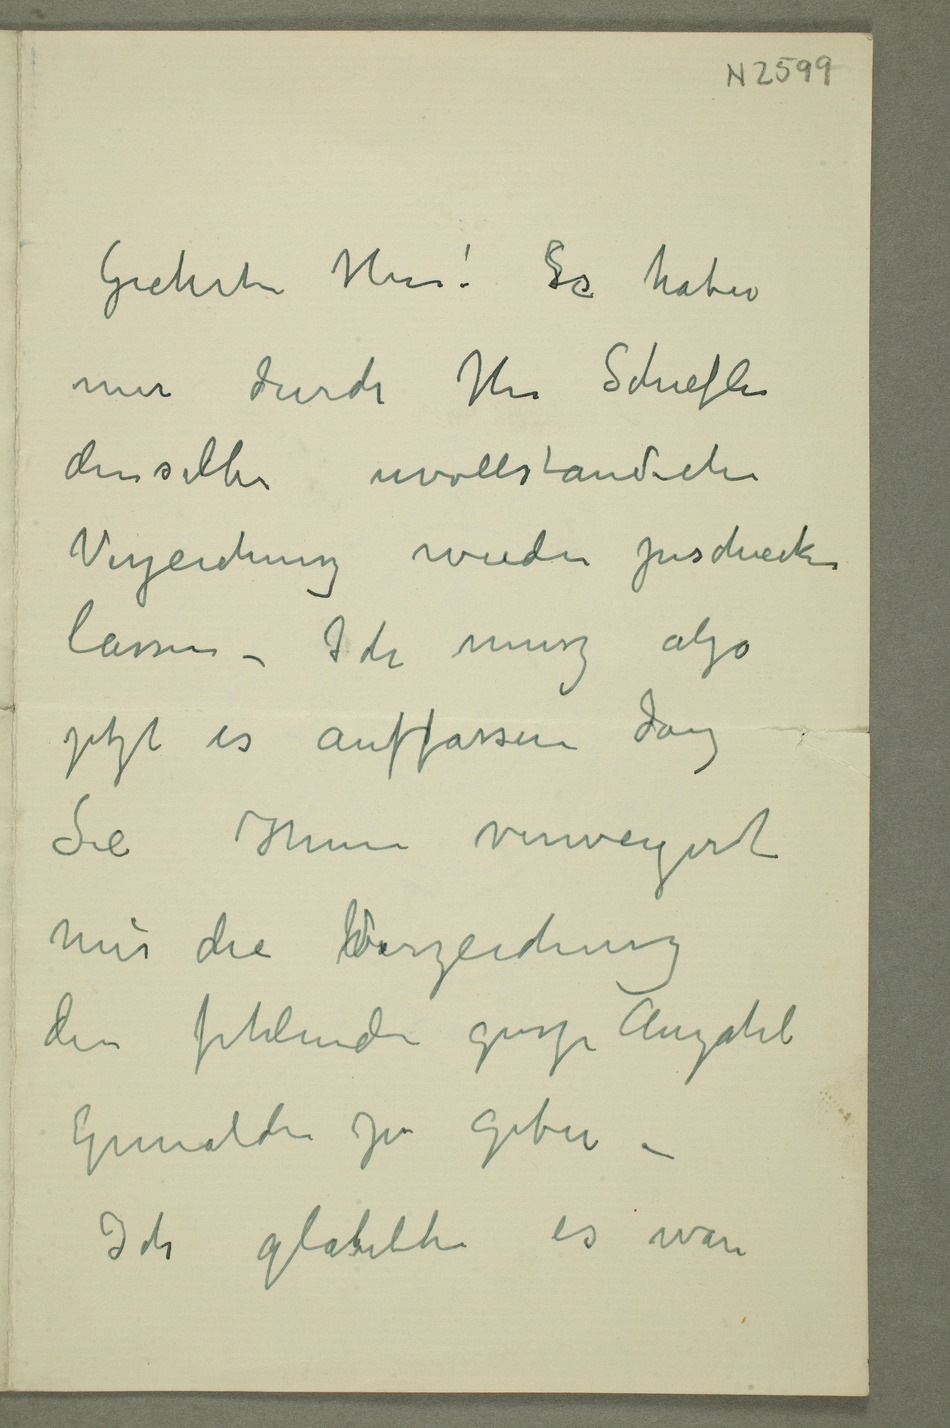 N 2599
Geehrter Herr! Es haben
mir durch Herr Schiefler
denselben uvollständichen
Verzeichung wieder zuschicken
lassen – Ich musz also
jetzt es auffassen dasz
Sie Ihnen verweigert
mir die Verzeichung
den fehlenden grosze Anzahl
Gemälden zu geben –
Ich glaubte es war